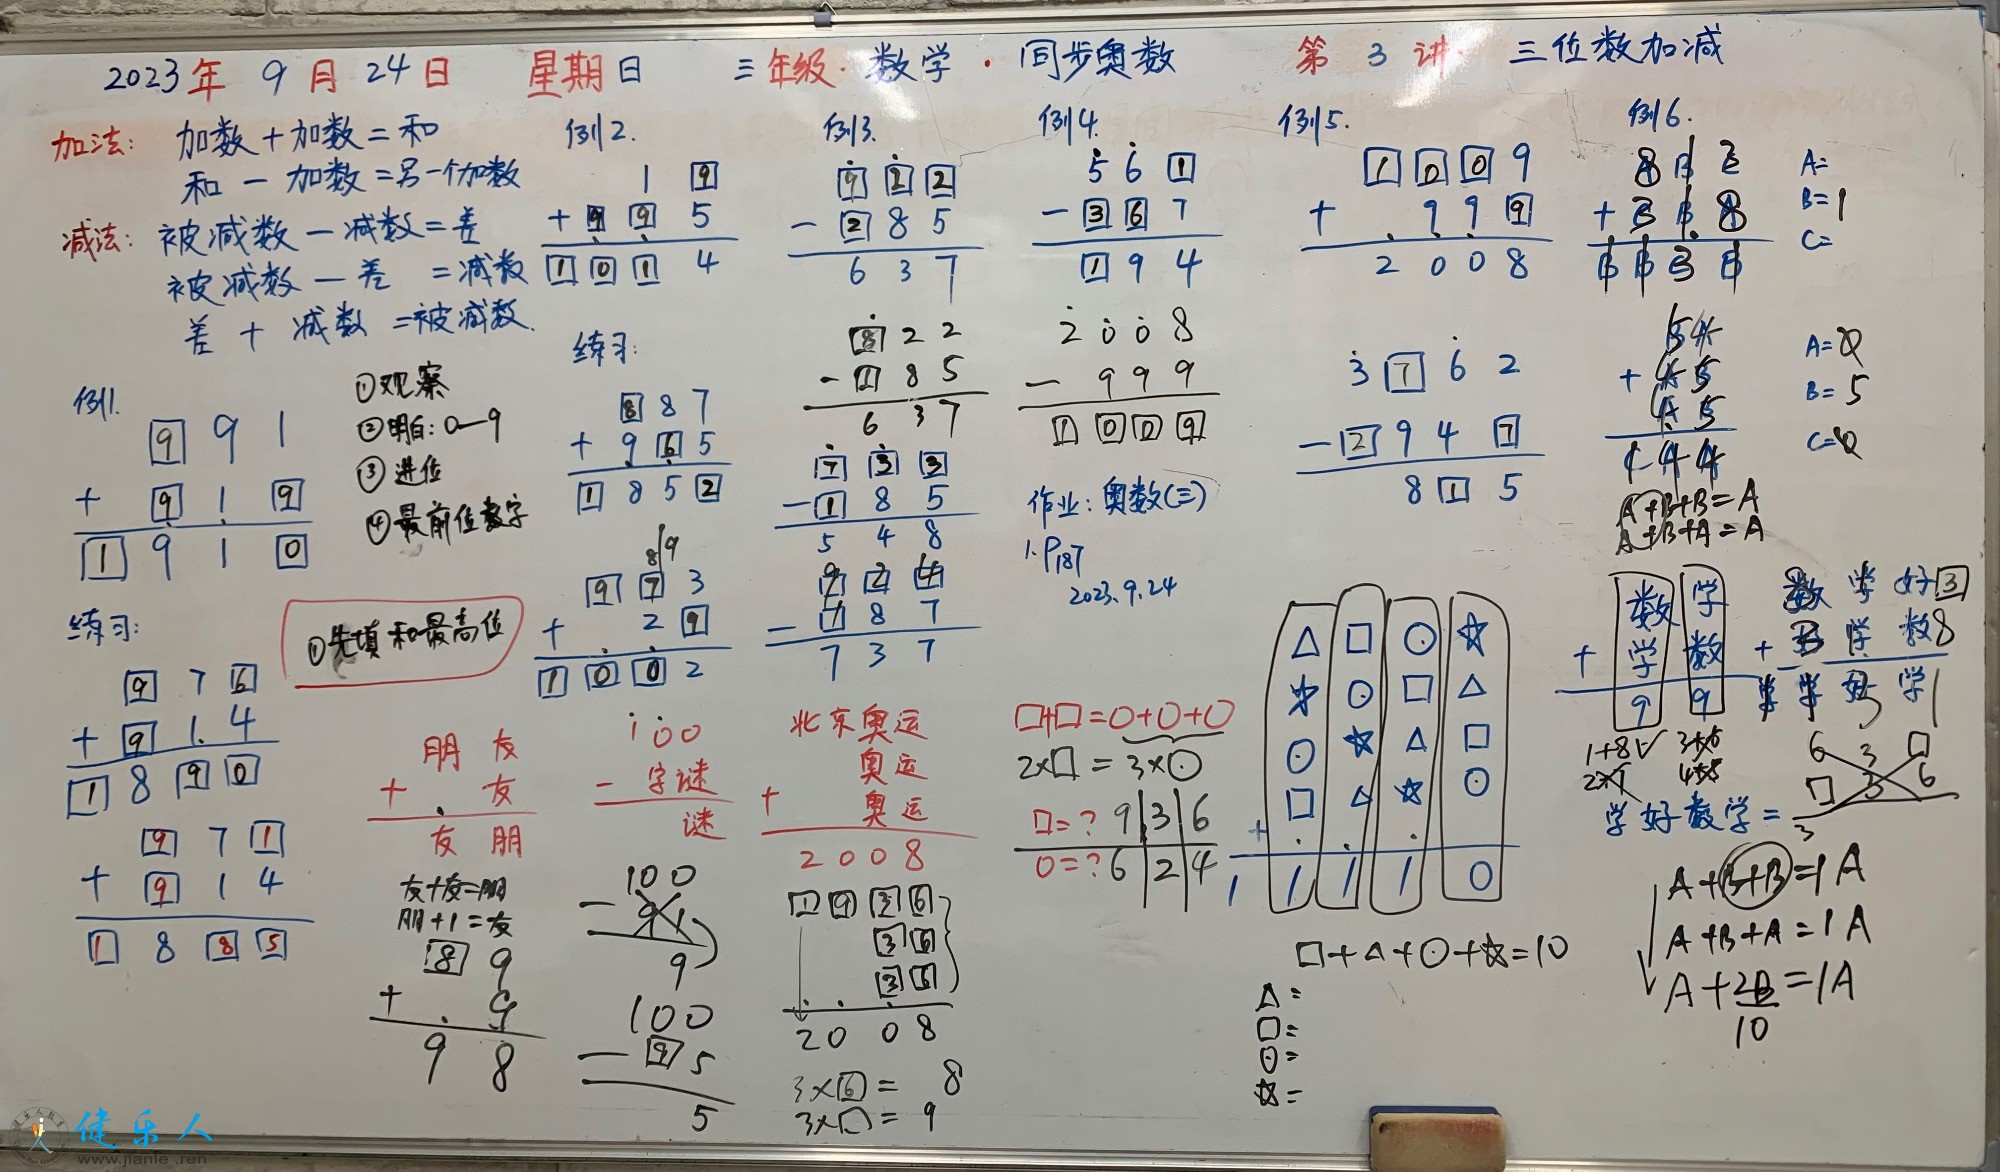 2023年 9月24日 星期日 三年级·数学·同步奥数 第3讲·三位数加减
加法: 加数+加数=和
和-加数=另一个加数
减法: 被减数-减数=差
被减数-差=减数
差+减数=被减数.
例1.
9 9 1
+ 9 1 9
1 9 1 0
①观察
②明白:0—9
③进位
④最前位数字
练习:
①先填和最高位
9 7 6
+ 9 1 4
1 8 9 0
9 7 1
+ 9 1 4
1 8 8 5
朋友
+ 友
友朋
友+友=朋
朋+1=友
8 9
+ 9
9 8
例2.
1 9
+ 9 9 5
1 0 1 4
练习:
8 8 7
+ 9 6 5
1 8 5 2
8 9
9 7 3
+ 2 9
1 0 0 2
100
- 字谜
谜
100
- 9 1
9
100
- 9 5
5
例3.
9 2 2
- 2 8 5
6 3 7
8 2 2
- 1 8 5
6 3 7
7 3 3
- 1 8 5
5 4 8
9 2 4
- 1 8 7
7 3 7
北京奥运
奥运
+ 奥运
2008
1 9 3 6
3 6
3 6
20 08
3×6= 8
3×□= 9
例4.
5 6 1
- 3 6 7
1 9 4
2 0 0 8
- 9 9 9
1 0 0 9
作业:奥数(三)
1. P187
2023.9.24
□+□=○+○+○
2×□=3×○
□=? 9 3 6
○=? 6 2 4
例5.
1 0 0 9
+ 9 9 9
2 0 0 8
3 7 6 2
- 2 9 4 7
8 1 5
△ □ ○ ☆
☆ ○ □ △
○ ☆ △ □
□ △ ☆ ○
+
1 1 1 1 0
□+△+○+☆=10
△=
□=
○=
☆=
例6.
A=
B=1
C=
A=
B=5
C=
A+B+B=A
A+B+A=A
数学
+ 学数
9 9
数学好 3
+ 学数8
学学好学
1+8✓
学好数学=
6 3 □
□ 3 6
3
A+B+B=1A
A+B+A=1A
A+2B=1A
10
健乐人
www.jianle.ren